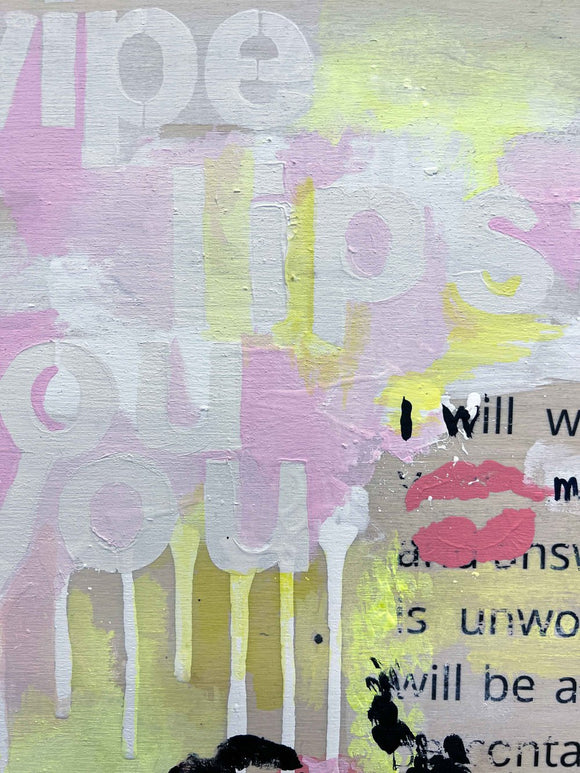 wipe
lips
you
you
I will w
m
and answ
is unwo
will be a
be conta